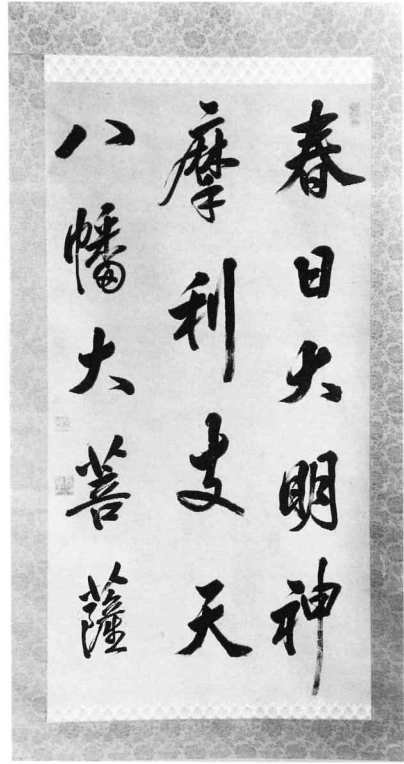 春日大明神
摩利支天
八幡大菩薩